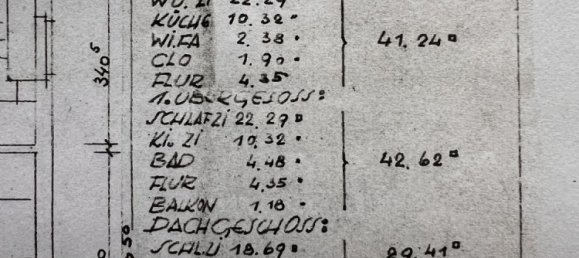 WO. ZI 22.29
KÜCHE 10.32 ▪
WI.FA 2.38 ▪ 41.24 ▫
CLO 1.90 ▪
FLUR 4.35
1.OBERGESOSS:
SCHLAFZI 22.29 ▫
KI. ZI 10.32 ▪
BAD 4.48 ▪ 42.62 ▫
FLUR 4.35 ▪
BALKON 1.18 ▪
DACHGESCHOSS:
SCHLZI 18.69 ▫ 29.41 ▫
340⁵